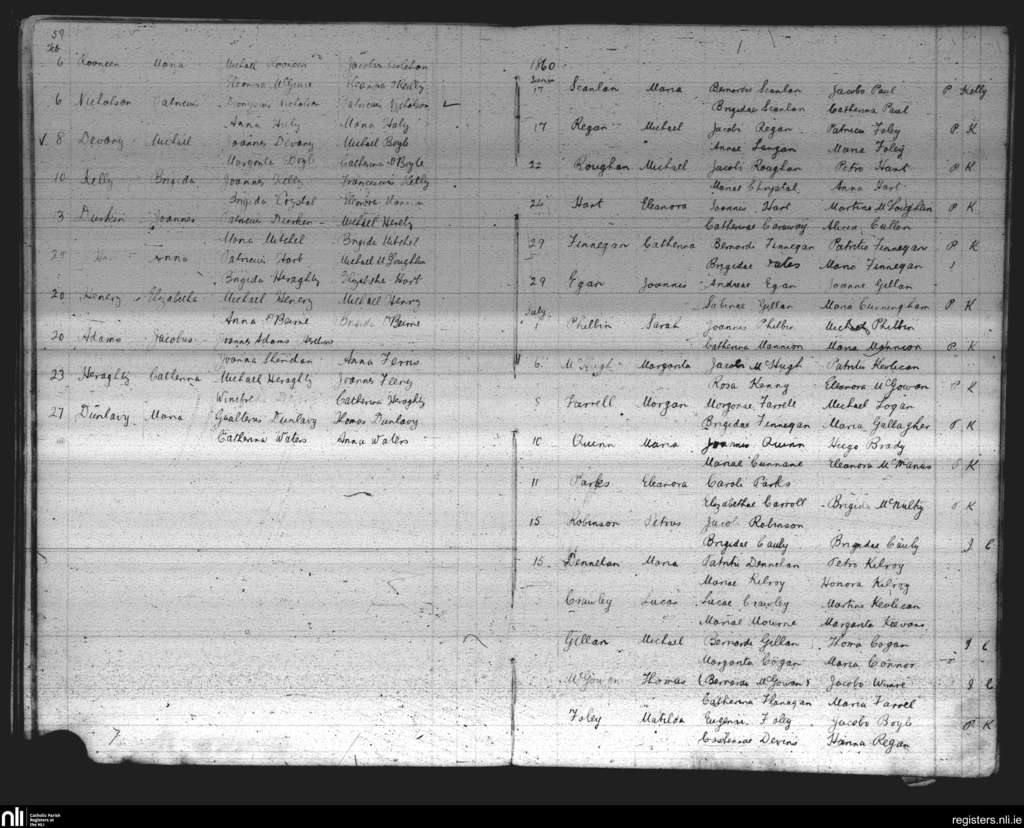 59
Feb
6 Rooneen Maria Michael Rooneen Jacobus
Eleanora McGuire
6 Nicholson Patricius Dionysius Nicholson Patricius Nicholson
Anna Haly Maria Haly
V. 8 Devany Michael Joannes Devany Michael Boyle
Margarita Boyle Catherina O'Boyle
10 Kelly Brigida Joannes Kelly Franciscus Kelly
Brigida Crystal Elenora
3 Durkin Joannes Patricius Durkin Michael Heraty
Maria Mitchel Brigida Mitchel
Hart Anna Patricius Hart Michael McLoughlin
Brigida Heraghty Elizabetha Hart
20 Henery Elizabetha Michael Henery Michael Henry
Anna O'Beirne Brigida O'Beirne
20 Adams Jacobus Joannes Adams
Joanna Sheridan Anna Ferris
23 Heraghty Catherina Michael Heraghty Joannes Feeny
Winefred Catherina Heraghty
27 Dunlavy Maria Gualterus Dunlavy Thomas Dunlavy
Catherina Waters Anna Waters
7
1860
Junii
17 Scanlan Maria Bernardi Scanlan Jacobo Paul P Kelly
Brigidae Scanlan Catherina Paul
17 Regan Michael Jacobi Regan Patricio Foley P K
Annae Langan Maria Foley
22 Roughan Michael Jacobi Roughan Petro Hart P K
Mariae Chrystal Anna Hart
24 Hart Eleanora Joannis Hart Martino McLoughlin P K
Catherinae Caraway Alicia Cullen
29 Finnegan Catherina Bernardi Finnegan Patritio Finnegan P K
Brigidae Yates Maria Finnegan
29 Egan Joannis Andreae Egan Joanne Gillan
Sabinae Gillan Maria Cunningham P K
July
1 Philbin Sarah Joannis Philbin Michael Philbin
Catherina Mannion Maria Mannion P K
6 McHugh Margarita Jacobi McHugh Patritio Keolican
Rosa Kenny Eleanora McGowan P K
8 Farrell Morgan Morganae Farrell Michael Logan
Brigidae Finnegan Maria Gallagher P K
10 Quinn Maria Joannis Quinn Hugo Brady
Mariae Cunnane Eleanora McManus P K
11 Parks Eleanora Caroli Parks
Elizabethae Carroll Brigida McNulty P K
15 Robinson Petrus Jacobi Robinson
Brigidae Cauly Brigidae Cauly J C
15 Dennelan Maria Patritii Dennelan Petro Kilroy
Mariae Kilroy Honora Kilroy
Crawley Lucas Lucae Crawley Martino Keolican
Mariae Mourne Margarita Keevans
Gillan Michael Bernardi Gillan Thoma Cogan J C
Margarita Cogan Maria Connor
McGowan Thomas (Bernardi McGowan) Jacobo J C
Catherina Flanagan Maria Farrel
Foley Matilda Eugenii Foley Jacobo Boyle P K
Catherinae Devins Hanna Regan
nli Catholic Parish Registers at the NLI
registers.nli.ie